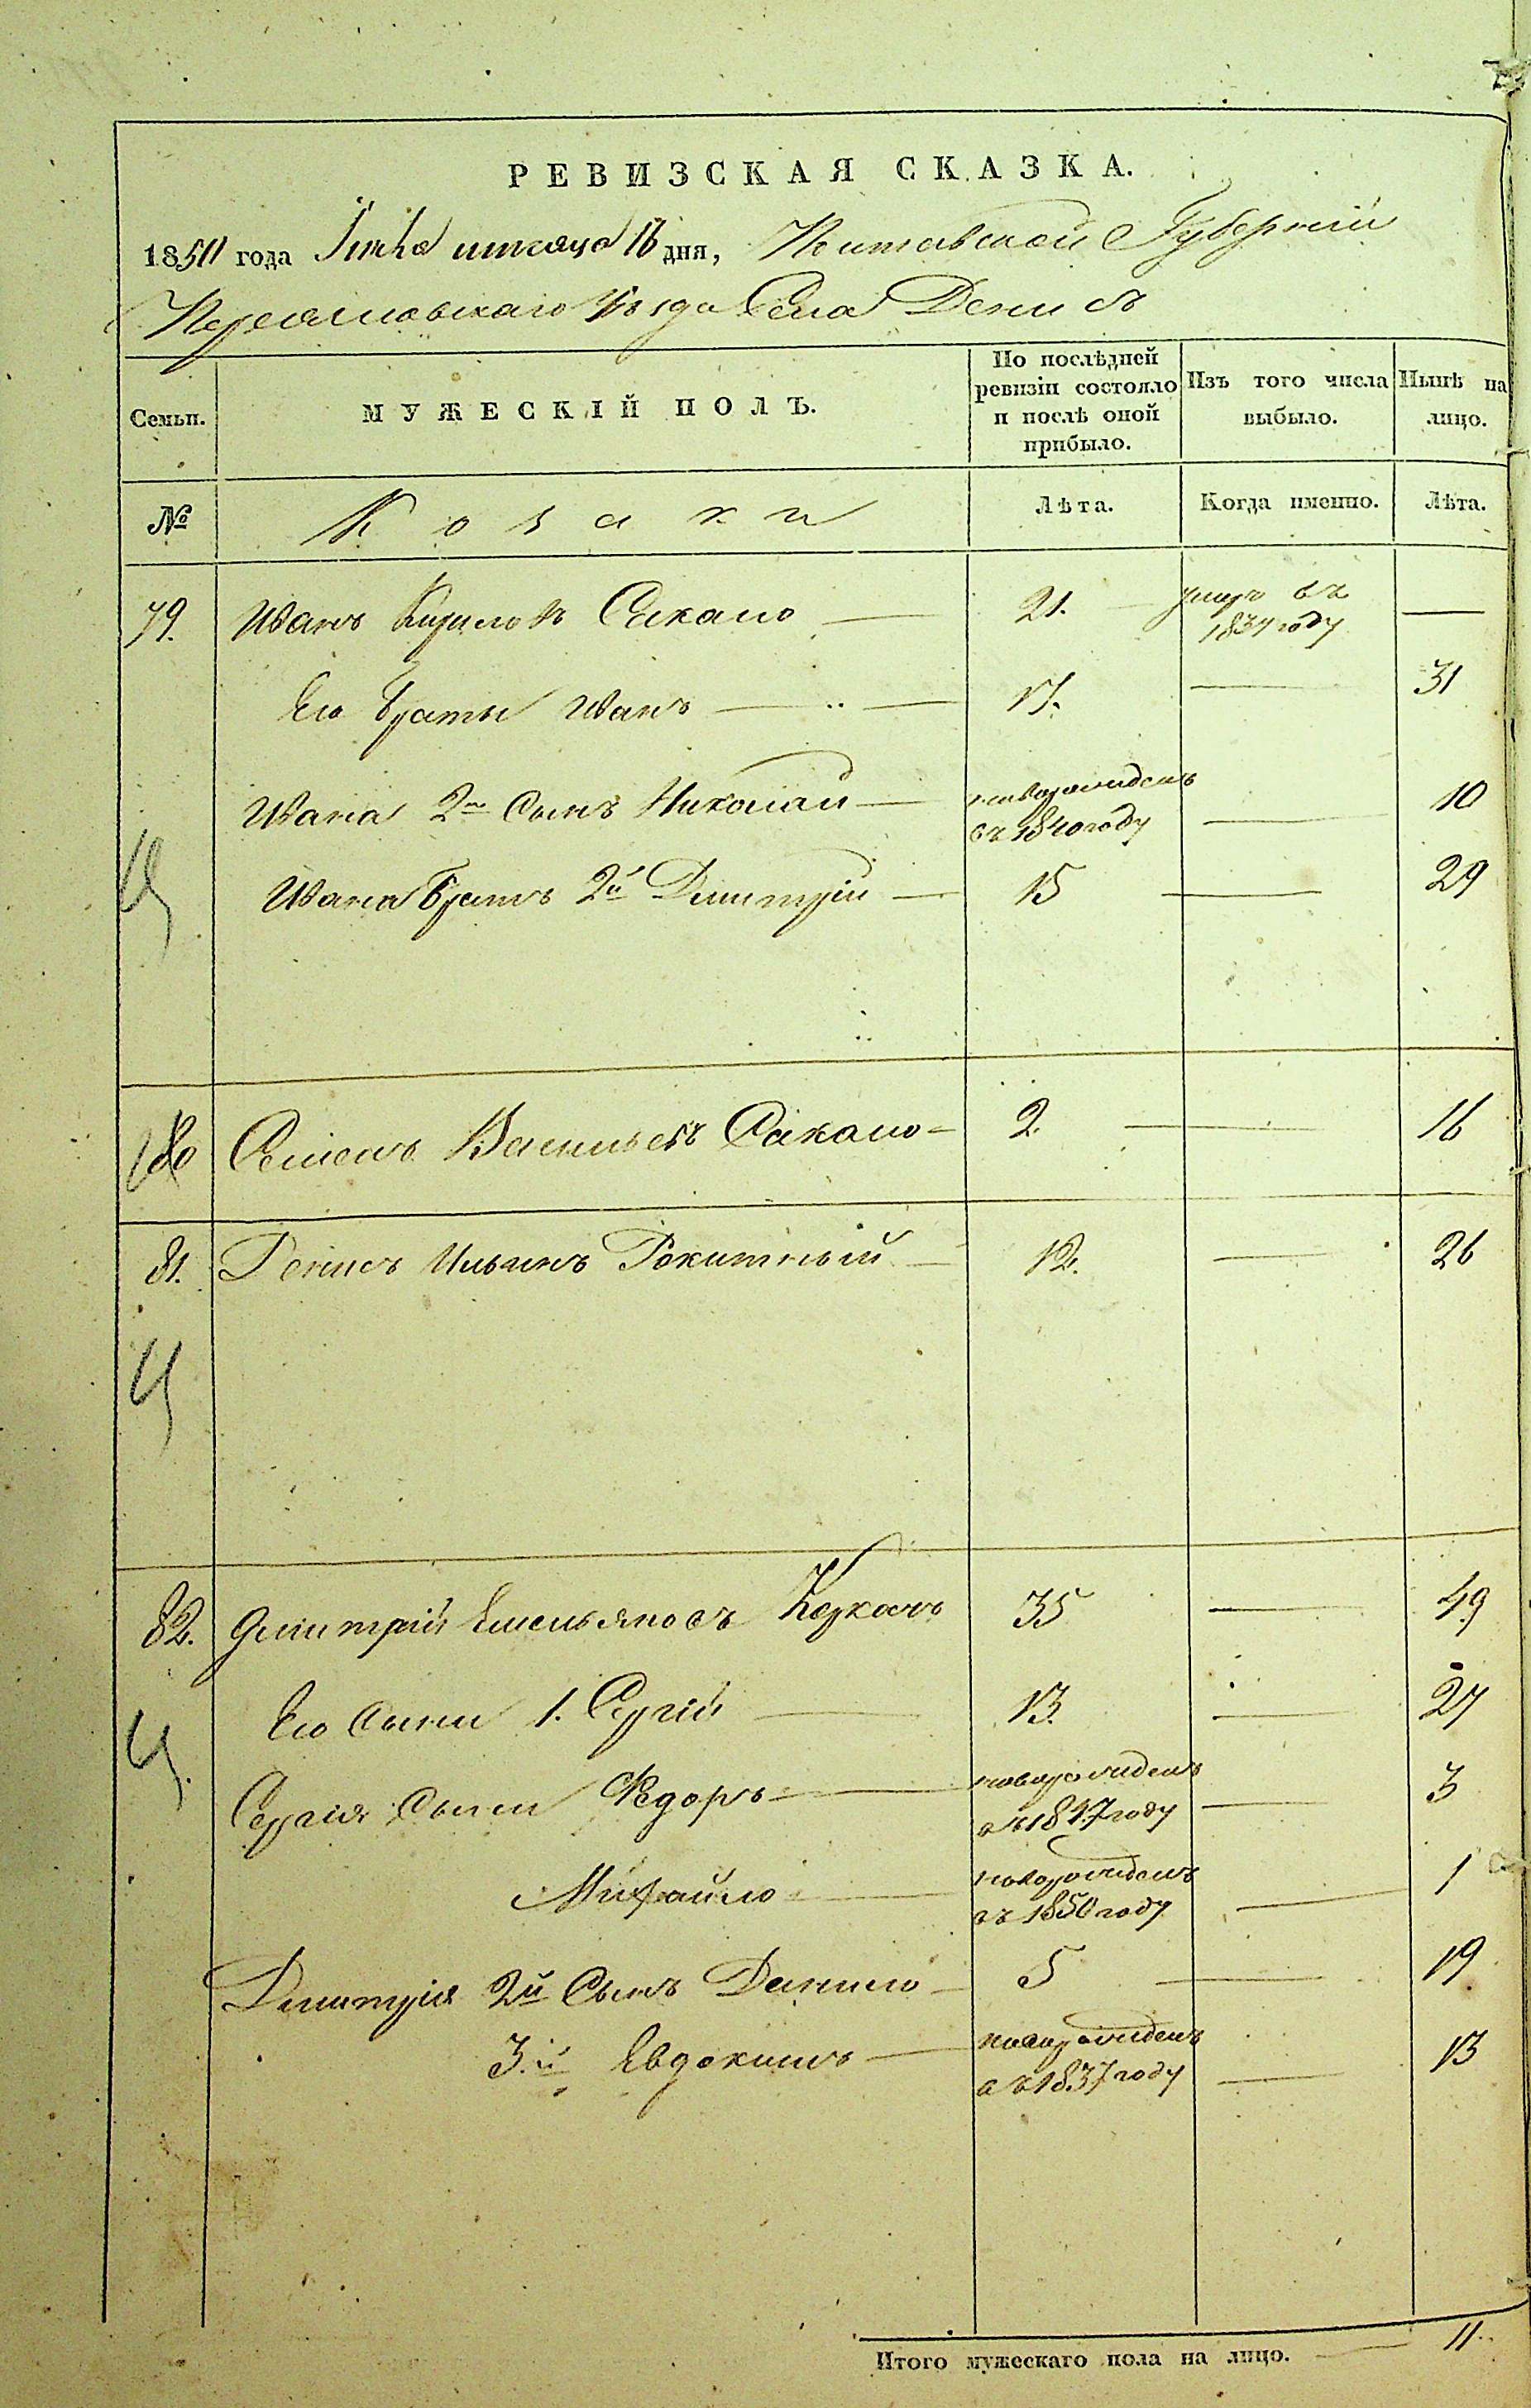 РЕВИЗСКАЯ СКАЗКА.
1850 года месяца 16 дня, Полтавской Губерніи
Переяславскаго Уѣзда Села Денисъ
Семьи.
МУЖЕСКІЙ ПОЛЪ.
По послѣдней ревизіи состояло и послѣ оной прибыло.
Изъ того числа выбыло.
Нынѣ на лицо.
№
Козаки
Лѣта.
Когда именно.
Лѣта.
79. Иванъ Кириловъ Сакало 21. умеръ въ
1837 году
Его Братъи Иванъ 17. 31
Ивана 2го Сынъ Николай новорожденъ
въ 1840 году 10
Ивана Братъ 2й Дмитрій 15 29
80 Семенъ Васильевъ Сакало 2. 16
81. Денисъ Ильинъ Рокитный 12. 26
82. Дмитрій Емельяновъ Коркачъ 35 49
Его Сыни 1. Сергій 13. 27
Сергія Сыни Федоръ новорожденъ
въ 1847 году 3
Михайло новорожденъ
въ 1850 году 1
Дмитрія 2й Сынъ Данило 5 19
3.й Евдокимъ новорожденъ
въ 1837 году 13
Итого мужескаго пола на лицо. 11.